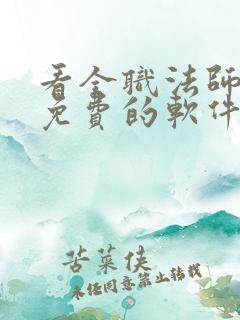 看全職法師
免費的軟件
苦菜侠
未经同意禁止转载